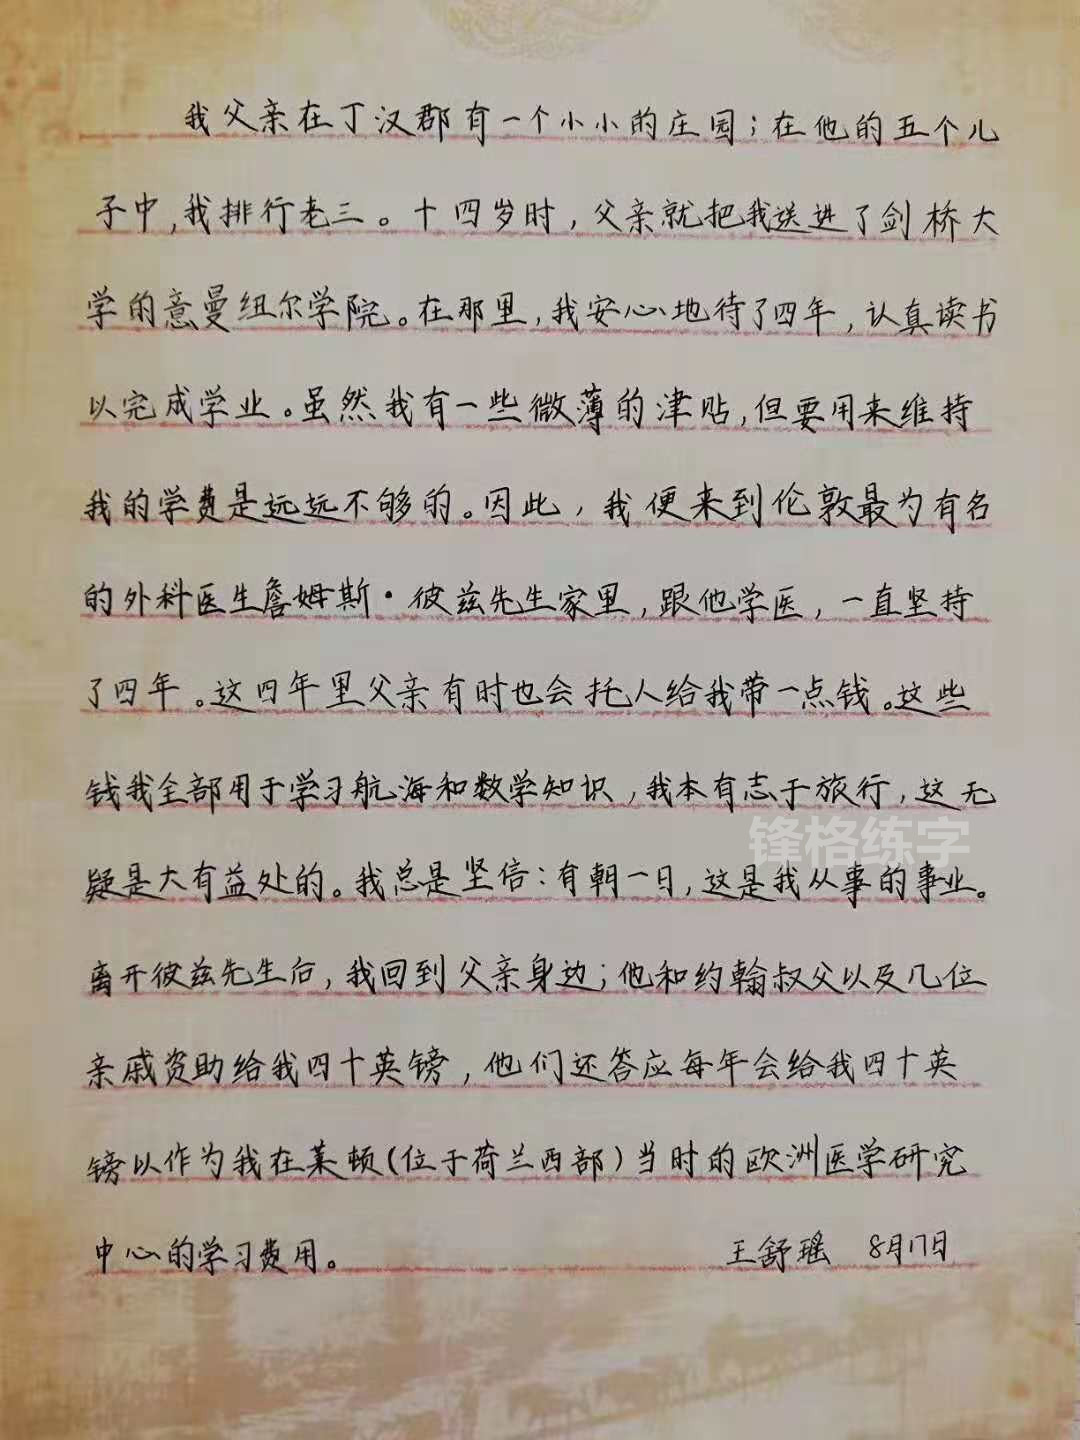 我父亲在丁汉郡有一个小小的庄园；在他的五个儿
子中，我排行老三。十四岁时，父亲就把我送进了剑桥大
学的意曼纽尔学院。在那里，我安心地待了四年，认真读书
以完成学业。虽然我有一些微薄的津贴，但要用来维持
我的学费是远远不够的。因此，我便来到伦敦最为有名
的外科医生詹姆斯·彼兹先生家里，跟他学医，一直坚持
了四年。这四年里父亲有时也会托人给我带一点钱。这些
钱我全部用于学习航海和数学知识，我本有志于旅行，这无
疑是大有益处的。我总是坚信：有朝一日，这是我从事的事业。
锋格练字
离开彼兹先生后，我回到父亲身边；他和约翰叔父以及几位
亲戚资助给我四十英镑，他们还答应每年会给我四十英
镑以作为我在莱顿（位于荷兰西部）当时的欧洲医学研究
中心的学习费用。 王舒瑶 8月17日